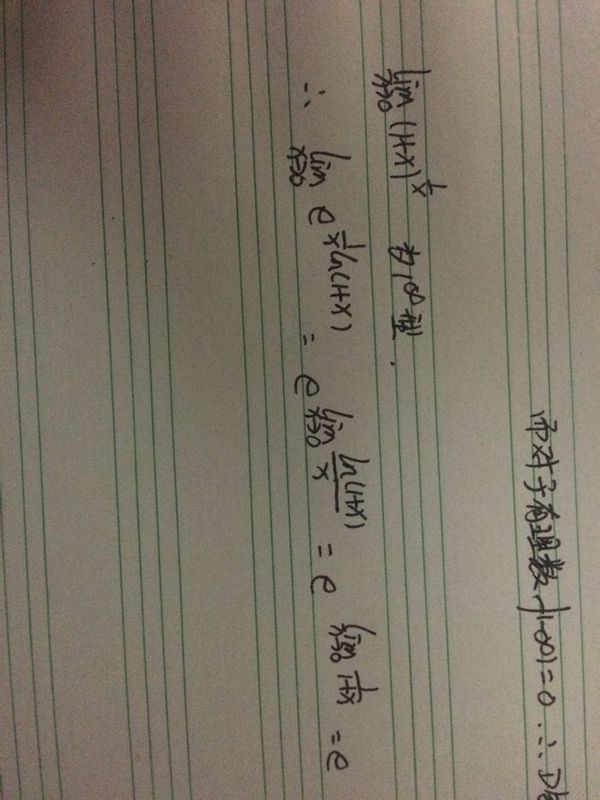 而对于有理数 f(-∞)=0 ∴ D
lim x→0 (1+x)^{1/x} 为 1^∞ 型.
∴ lim x→0 e^{1/x ln(1+x)} = e^{lim x→0 ln(1+x)/x} = e^{lim x→0 1/(1+x)} = e